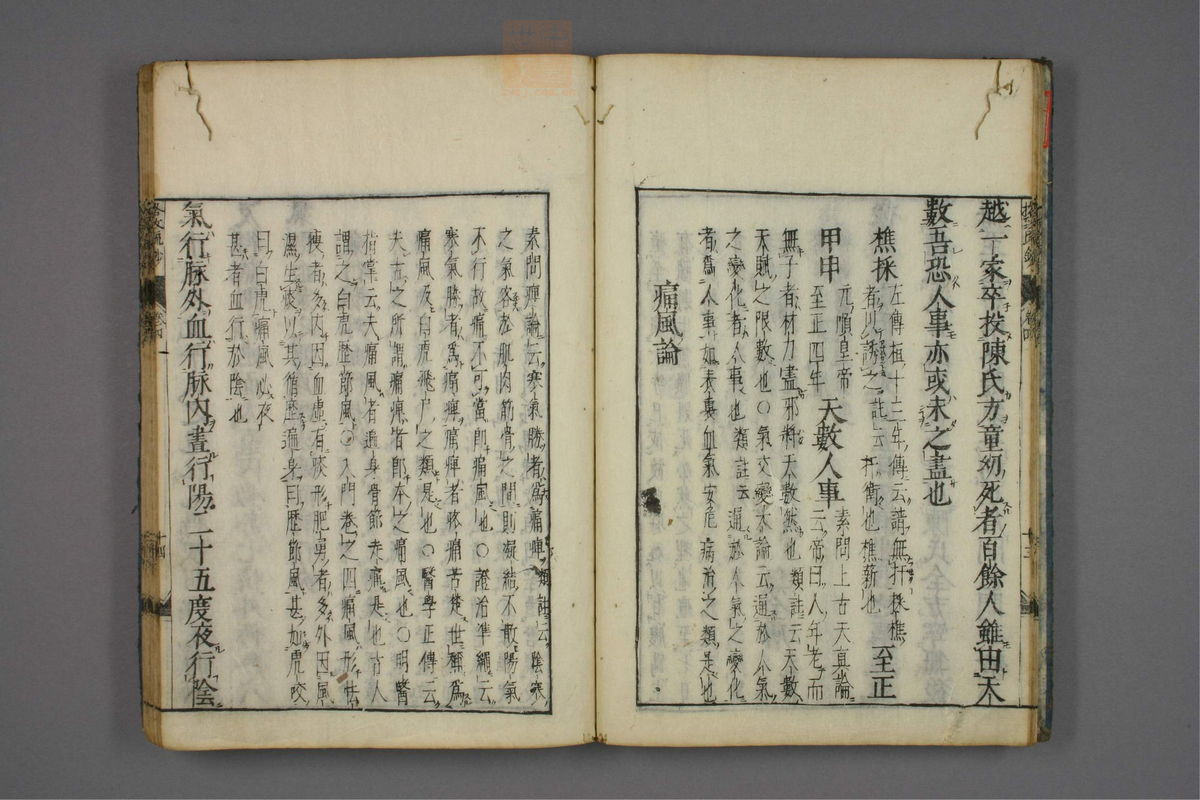 越一家卒投陳氏方童幼死者百餘人雖由天
數吾恐人事亦或未之盡也
樵採
左傳桓十二年傳云請無扞採樵
者以誘之註云扞衛也樵薪也
至正
甲申
元順皇帝
至正四年
天數人事
素問上古天真論
云帝曰人年老而
無子者材力盡邪將天數然也類註云天數
天賦之限數也○氣交變大論云通於人氣
之變化者人事也類註云通於人氣之變化
者為人事如表裏血氣安危病治之類是也
痛風論
素問痺論云寒氣勝者為痛痺類註云陰寒
之氣客於肌肉筋骨之間則凝結不散陽氣
不行故痛不可當即痛風也○證治準繩云
寒氣勝者為痛痺痛痺者疼痛苦楚世稱為
痛風及白虎飛尸之類是也○醫學正傳云
夫古之所謂痛痺者即今之痛風也○明醫
指掌云夫痛風者遍身骨節走痛是也古人
謂之白虎歷節風○入門卷之四痛風形怯
瘦者多內因血虛有火形肥勇者多外因風
濕生痰以其循歷遍身曰歷節風甚如虎咬
曰白虎痛風必夜
甚者血行於陰也
氣行脉外血行脉內晝行陽二十五度夜行陰